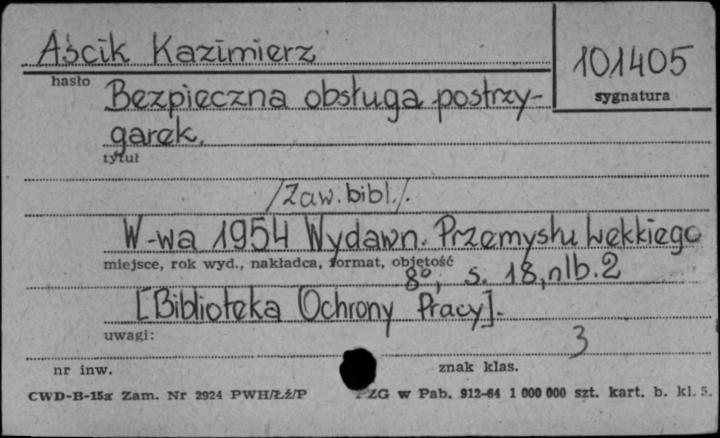 Aścik Kazimierz
101405
hasło
sygnatura
Bezpieczna obsługa postrzy-
garek.
tytuł
/Zaw. bibl./.
W-wa 1954 Wydawn. Przemysłu Lekkiego
miejsce, rok wyd., nakładca, format, objętość
8°, s. 18, nlb. 2
[Biblioteka Ochrony Pracy].
uwagi:
3
nr inw.
znak klas.
CWD-B-15a Zam. Nr 2924 PWH/Łź/P
PZG w Pab. 912-64 1 000 000 szt. kart. b. kl. 5.